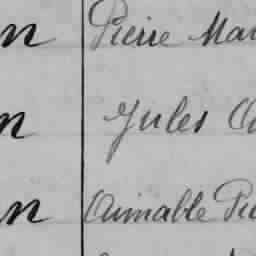 n Pierre Mar
n Jules
n Aimable Pie